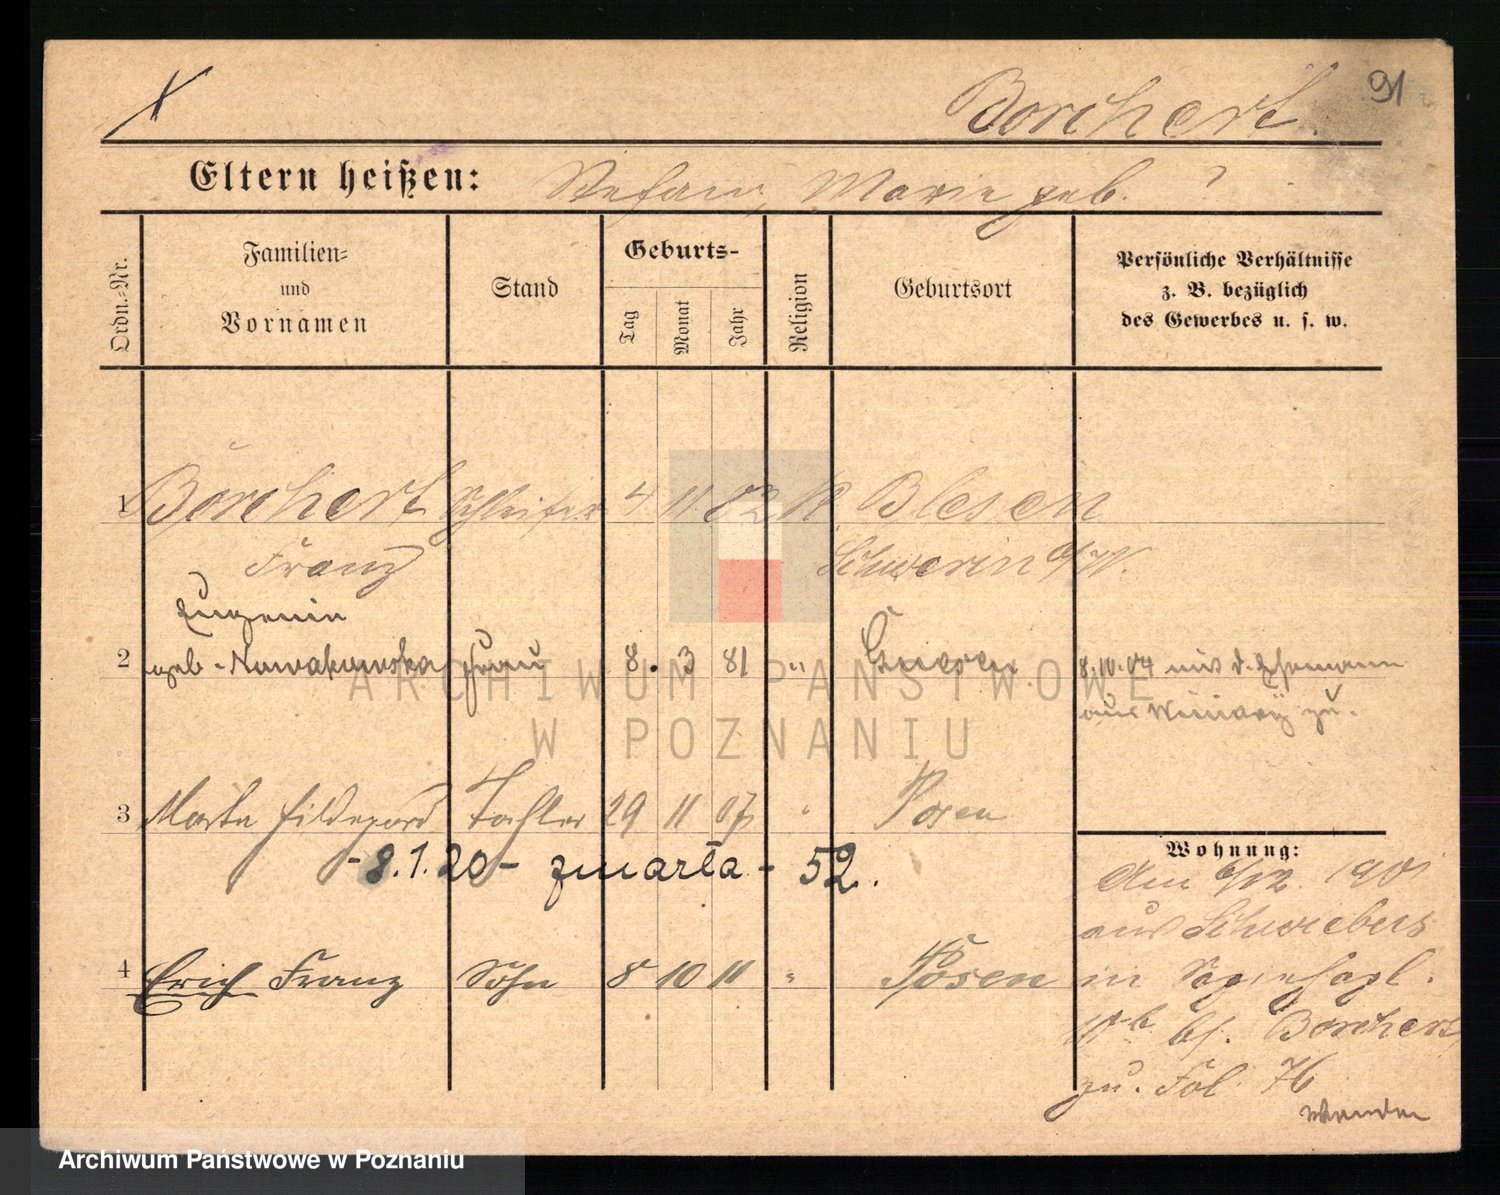 Borchert.
91
Eltern heißen: Stefan, Marie geb. ?
Ordn.=Nr.
Familien=
und
Vornamen
Stand
Geburts-
Tag
Monat
Jahr
Religion
Geburtsort
Persönliche Verhältnisse
z. B. bezüglich
des Gewerbes u. s. w.
1 Borchert Schleifer 4. 11. 82 K. Blesen
Franz Schwerin a/W.
Eugenie
2 geb. Nowakowska Frau 8. 3 81 " Gnesen 8.10.04 mit d. Ehemann
aus zu.
3 Marta Hildegard Tochter 29 11 07 " Posen
-8.1.20- zmarła - 52.
Wohnung:
Am 6/12. 190
aus Schwiebus
4 Erich Franz Sohn 8 10 11 " Posen
in
bf. Borchert
zu. Fol. 76
ARCHIWUM PAŃSTWOWE
W POZNANIU
Archiwum Państwowe w Poznaniu